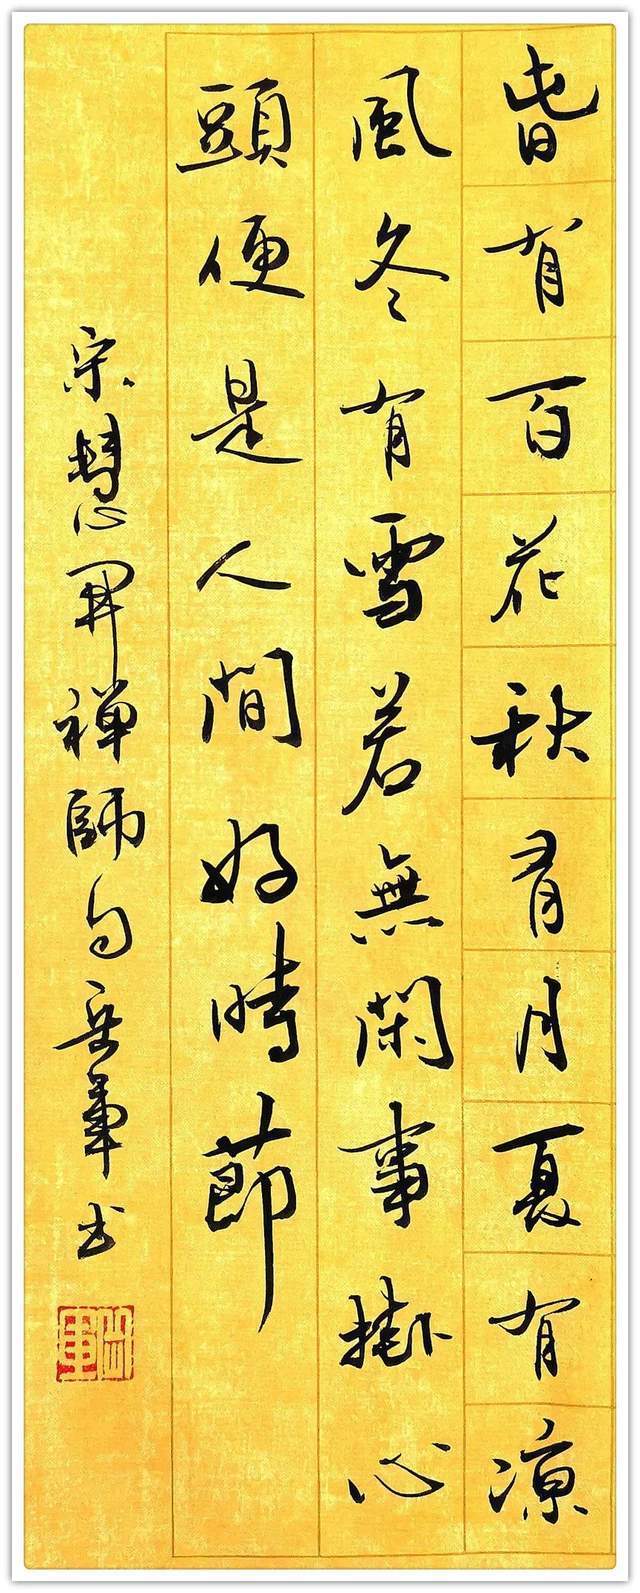 旾有百花秋有月夏有凉
風冬有雪若無閑事掛心
頭便是人間好時節
宋慧開禅師句岳軍书